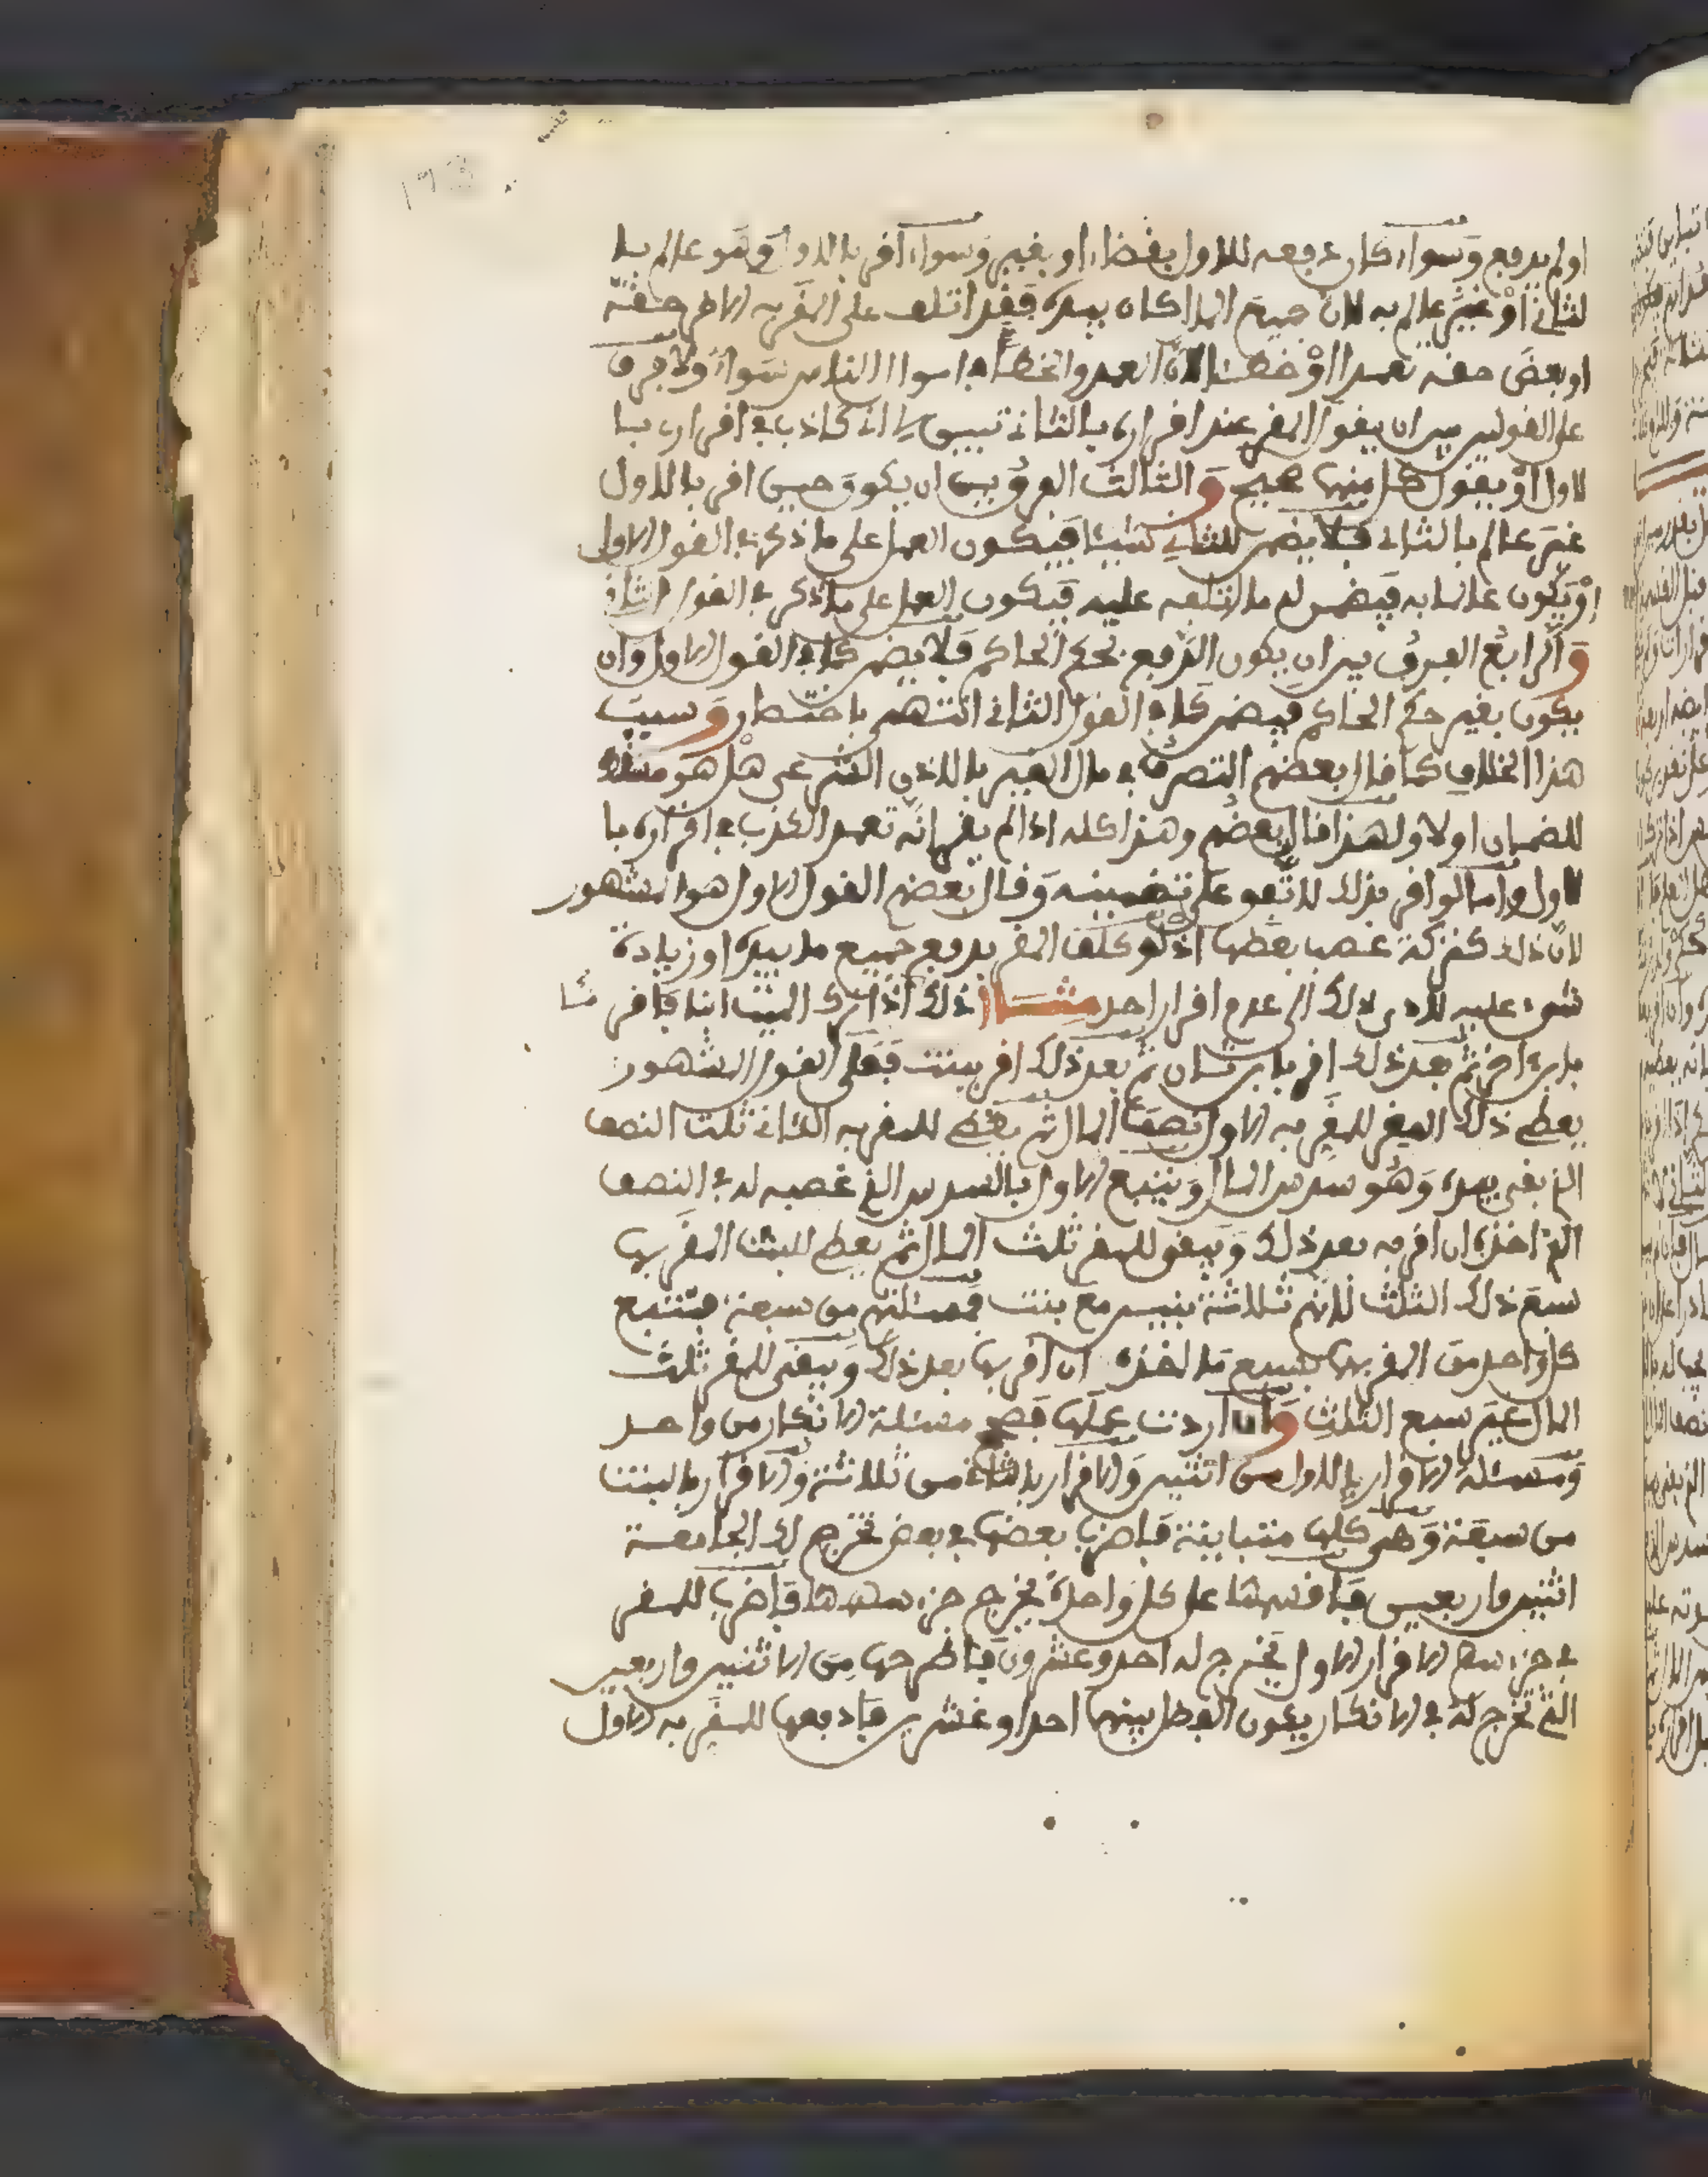 او لم يدفع وسواء كان دفعه للاول بقضاء او بغيره وسواء اقر بالاول وهو عالم با
لثاني أو غير عالم به لان جميع المال كان بيده فقد اتلف على المقر به الاخر حقه
او بعض حقه تعمدا أو خطئا لان العمد والخطأ في اموال الناس سواء ولا فرق
على القولين بين ان يقول المقر عند اقراره بالثاني تبين لي اني كاذب في اقراري با
لاول أو يقول كل منهما صحيح والثالث الفرق بين ان يكون حين اقر بالاول
غير عالم بالثاني فلا يضمن للثاني شيئا فيكون العمل على ما ذكر في القول الاول
او يكون عالما به فيضمن له ما اتلفه عليه فيكون العمل على ما ذكر في القول الثاني
والرابع الفرق بين ان يكون الدفع بحكم الحاكم فلا يضمن كما في القول الاول وان
يكون بغير حكم الحاكم فيضمن كما في القول الثاني انتهى باختصار وسبب
هذا الخلاف كما قال بعضهم التصرف في مال الغير بالاذن الشرعي هل هو مسقط
للضمان اولا ولهذا قال بعضهم وهذا كله اذا لم يقر انه تعمد الكذب في اقراره با
لاول واما لو اقر بذلك لاتفق على تضمينه وقال بعضهم القول الاول هو المشهور
لان ذلك كتركة غصب بعضها اذ لو كلف المقر بدفع جميع ما بيده او زيادة
شيء عليه لادى ذلك الى عدم اقرار احد مثال ذلك اذا ترك الميت ابنا فاقر مثلا
بابن اخر ثم بعد ذلك اقر بابن ثان ثم بعد ذلك اقر ببنت فعلى القول المشهور
يعطي ذلك المقر للمقر به الاول نصف المال ثم يعطي للمقر به الثاني ثلث النصف
الذي بقي بيده وهو سدس المال ويتبع الاول بالسدس الذي غصبه له في النصف
الذي اخذه ان اقر به بعد ذلك ويبقى للمقر ثلث المال ثم يعطي للبنت المقر بها
سبع ذلك الثلث لانهم ثلاثة بنين مع بنت فمسئلتهم من سبعة فتتبع
كل واحد من المقر بهما بسبع ما اخذه ان اقر بها بعد ذلك ويبقى للمقر ثلث
المال غير سبع الثلث وان اردت عملها فصحح مسئلة الانكار من واحد
ومسئلة الاقرار بالاول من اثنين والاقرار بالثاني من ثلاثة والاقرار بالبنت
من سبعة وهي كلها متباينة فاضرب بعضها في بعض تخرج لك الجامعة
اثنين واربعين فاقسمها على كل واحدة يخرج جزء سهمها فاضرب للمقر
في جزء سهم الاقرار الاول يخرج له احد وعشرون فاطرحها من الاثنين واربعين
التي تخرج له في الانكار يكون الفضل بينهما احدا وعشرين فادفعها للمقر به الاول